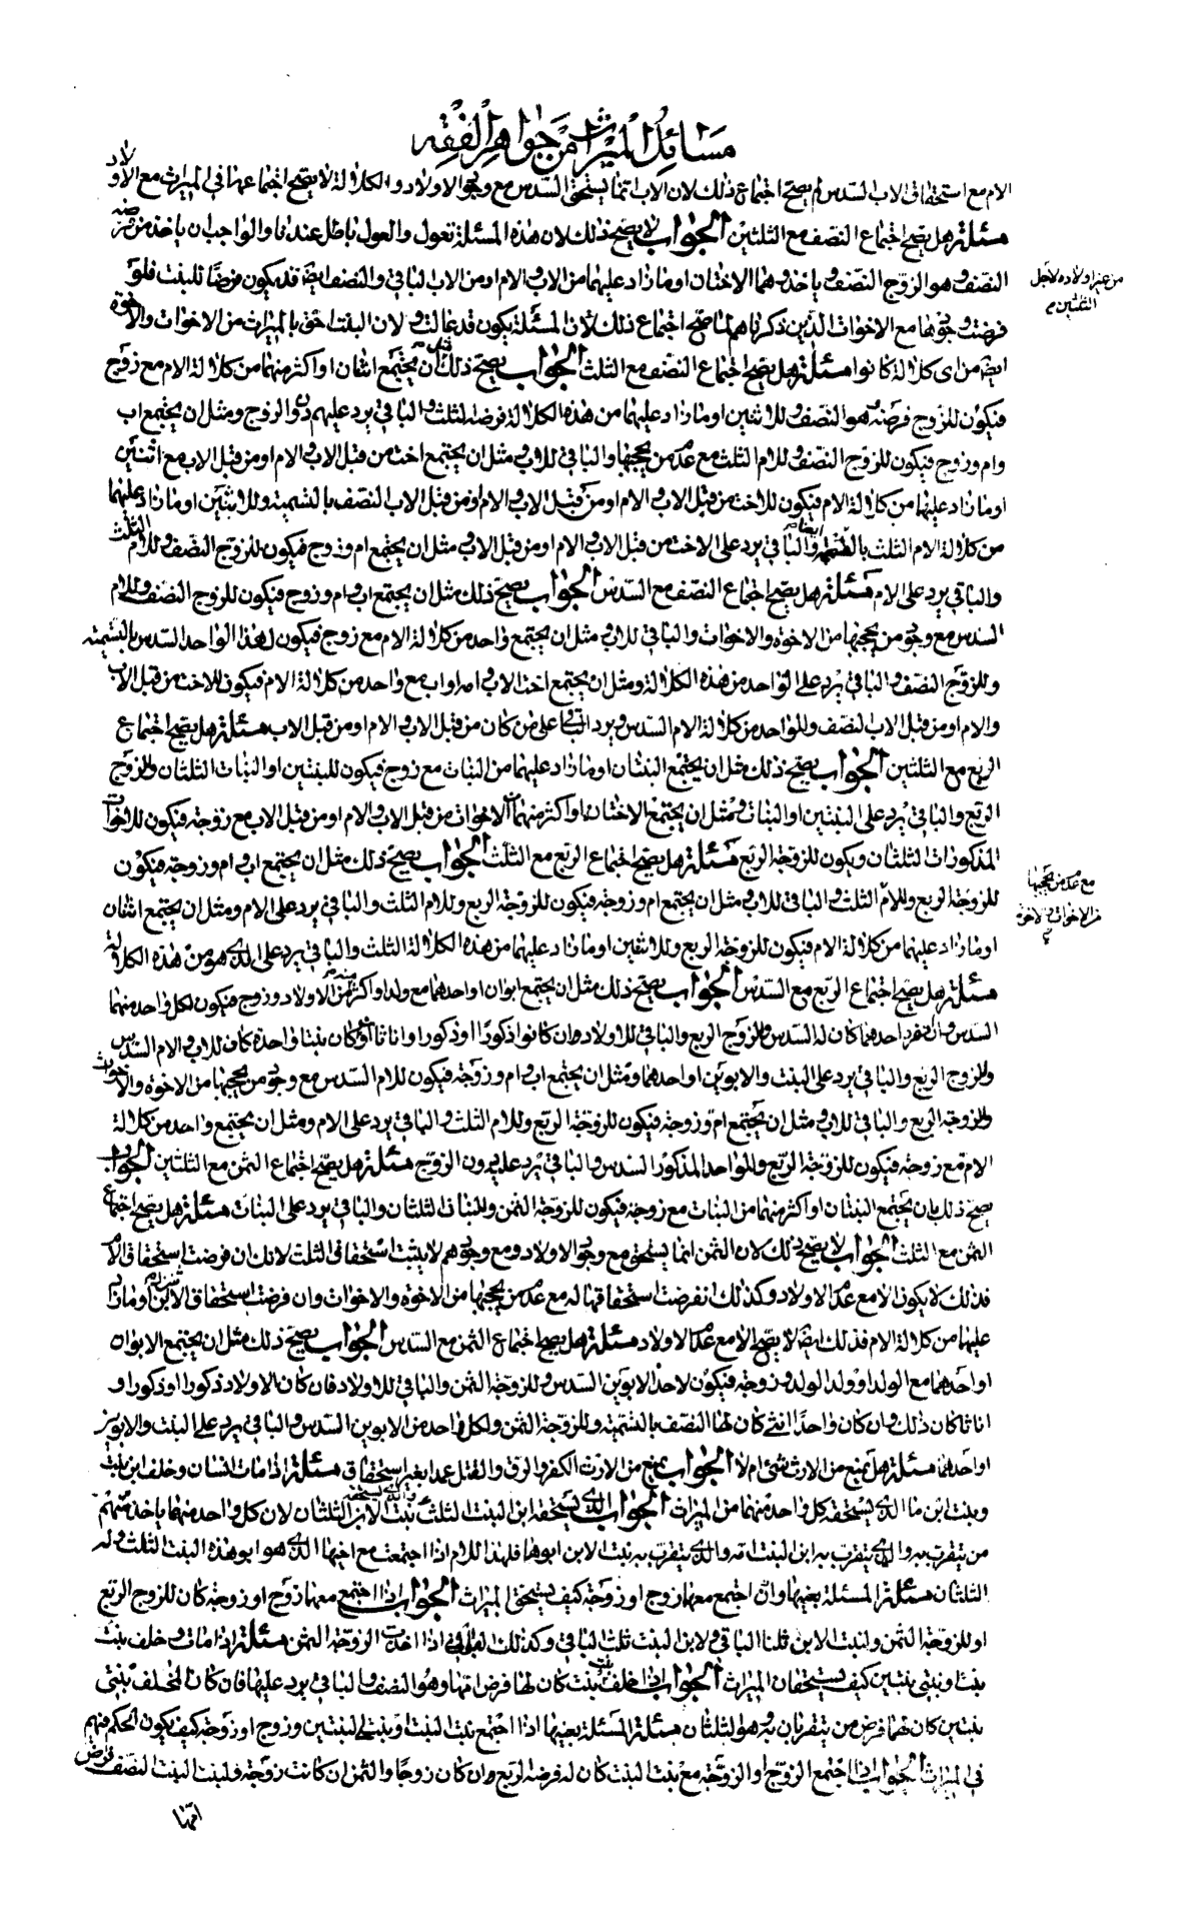 مسائل الميراث من جواهر الفقه
الام مع استحقاق الاب السدس لم يصح اجتماع ذلك لان الاب انما يستحق السدس مع وجود الاولاد والكلالة لا يصح اجتماعها في الميراث مع الأولاد
مسئلة هل يصح اجتماع النصف مع الثلثين الجواب لا يصح ذلك لان هذه المسئلة تعول والعول باطل عندنا والواجب ان ياخذ من فرضه
النصف وهو الزوج النصف وياخذ وهما الاختان او ما زاد عليهما من الاب والام او من الاب الباقي والنصف ايضا قد يكون فرضا للبنت فلو
من عنى اولاده لاجل
الثلثين م
فرضت وجودها مع الاخوات الذين ذكرناهم لما صح اجتماع ذلك لان المسئلة يكون قد عالت ولان البنت احق بالميراث من الاخوات والاخوة
ايضا من اى كلالة كانوا مسئلة هل يصح اجتماع النصف مع الثلث الجواب يصح ذلك مثل ان يجتمع اثنان او اكثر منهما من كلالة الام مع زوج
فيكون للزوج فرضه هو النصف وللاثنين او ما زاد عليهما من هذه الكلالة فرضه الثلث والباقي يرد عليهم دون الزوج ومثل ان يجتمع اب
وام وزوج فيكون للزوج النصف وللام الثلث مع عدم من يحجبها والباقي للاب ومثل ان يجتمع اخت من قبل الاب والام او من قبل الاب مع اثنين
او ما زاد عليهما من كلالة الام فيكون للاخت من قبل الاب والام او من قبل الاب النصف بالتسمية وللاثنين او ما زاد عليهما
من كلالة الام الثلث بالتسمية ايضا والباقي يرد على الاخت من قبل الاب والام او من قبل الاب ومثل ان يجتمع ام وزوج فيكون للزوج النصف وللام الثلث
والباقي يرد على الام مسئلة هل يصح اجتماع النصف مع السدس الجواب يصح ذلك مثل ان يجتمع اب وام وزوج فيكون للزوج النصف وللام
السدس مع وجود من يحجبها من الاخوة والاخوات والباقي للاب ومثل ان يجتمع واحد من كلالة الام مع زوج فيكون لهذا الواحد السدس بالتسمية
وللزوج النصف والباقي يرد على الواحد من هذه الكلالة ومثل ان يجتمع اخت لاب وام او اب مع واحد من كلالة الام فيكون للاخت من قبل الاب
والام او من قبل الاب النصف وللواحد من كلالة الام السدس ويرد الباقي على من كان من قبل الاب والام او من قبل الاب مسئلة هل يصح اجتماع
الربع مع الثلثين الجواب يصح ذلك مثل ان يجتمع البنتان او ما زاد عليهما من البنات مع زوج فيكون للبنتين او البنات الثلثان وللزوج
الربع والباقي يرد على البنتين او البنات ومثل ان يجتمع الاختان او اكثر منهما من الاخوات من قبل الاب والام او من قبل الاب مع زوجة فيكون للاخوات
المذكورات الثلثان ويكون للزوجة الربع مسئلة هل يصح اجتماع الربع مع الثلث الجواب يصح ذلك مثل ان يجتمع اب وام وزوجة فيكون
مع عدم من يحجبها
من الاخوات والاخوة
م
للزوجة الربع وللام الثلث والباقي للاب ومثل ان يجتمع ام وزوجة فيكون للزوجة الربع وللام الثلث والباقي يرد على الام ومثل ان يجتمع اثنان
او ما زاد عليهما من كلالة الام فيكون للزوجة الربع وللاثنين او ما زاد عليهما من هذه الكلالة الثلث والباقي يرد على الذى هو من هذه الكلالة
مسئلة هل يصح اجتماع الربع مع السدس الجواب يصح ذلك مثل ان يجتمع ابوان او احدهما مع ولد او اكثر منه من الاولاد وزوج فيكون لكل واحد منهما
السدس وان انفرد احدهما كان له السدس وللزوج الربع والباقي للاولاد وان كانوا ذكورا او ذكورا واناثا وان كان بنتا واحدة كان للاب والام السدس
وللزوج الربع والباقي يرد على البنت والابوين او احدهما ومثل ان يجتمع اب وام وزوجة فيكون للام السدس مع وجود من يحجبها من الاخوة والاخوات
وللزوجة الربع والباقي للاب ومثل ان يجتمع ام وزوجة فيكون للزوجة الربع وللام الثلث والباقي يرد على الام ومثل ان يجتمع واحد من كلالة
الام مع زوجة فيكون للزوجة الربع وللواحد المذكور السدس والباقي يرد عليه دون الزوج مسئلة هل يصح اجتماع الثمن مع الثلثين الجواب
يصح ذلك بان يجتمع البنتان او اكثر منهما من البنات مع زوجة فيكون للزوجة الثمن وللبنات الثلثان والباقي يرد على البنات مسئلة هل يصح اجتماع
الثمن مع الثلث الجواب لا يصح ذلك لان الثمن انما يستحق مع وجود الاولاد ومع وجودهم لا يثبت استحقاق الثلث لانك ان فرضت استحقاق الام
فذلك لا يكون الا مع عدم الاولاد وكذلك ان فرضت استحقاقها له مع عدم من يحجبها من الاخوة والاخوات وان فرضت استحقاق الاثنين او ما زاد
عليهما من كلالة الام فذلك ايضا لا يصح الا مع عدم الاولاد مسئلة هل يصح اجتماع الثمن مع السدس الجواب يصح ذلك مثل ان يجتمع الابوان
او احدهما مع الولد او ولد الولد وزوجة فيكون لاحد الابوين السدس وللزوجة الثمن والباقي للاولاد فان كان الاولاد ذكورا او ذكورا و
اناثا كان ذلك وان كان واحدا انثى كان لها النصف بالتسمية وللزوجة الثمن ولكل واحد من الابوين السدس والباقي يرد على البنت والابوين
او احدهما مسئلة هل يمنع من الارث شئ ام لا الجواب يمنع من الارث الكفر والرق والقتل عمدا بغير استحقاق مسئلة اذا مات انسان وخلف ابن بنت
وبنت ابن ما الذى يستحقه كل واحد منهما من الميراث الجواب الذى يستحقه ابن البنت الثلث والذى يستحقه بنت الابن الثلثان لان كل واحد منهما ياخذ سهم
من يتقرب به والذى يتقرب به ابن البنت امه والذى يتقرب به بنت الابن ابوها فلهذا للام اذا اجتمعت مع اخيها الذى هو ابو هذه البنت الثلث وله
الثلثان مسئلة المسئلة بعينها وان اجتمع معهما زوج او زوجة كيف يستحق الميراث الجواب اذا اجتمع معهما زوج او زوجة كان للزوج الربع
او للزوجة الثمن ولبنت الابن ثلثا الباقي ولابن البنت ثلث الباقي وكذلك الباقي اذا اخذت الزوجة الثمن مسئلة اذا مات وخلف بنت
بنت او بنتى بنتين كيف يستحقان الميراث الجواب اذا خلف بنت بنت كان لها فرض امها وهو النصف والباقي يرد عليها فان كان المخلف بنتى
بنتين كان لهما فرض من يتقربان به وهو الثلثان مسئلة المسئلة بعينها اذا اجتمع بنت البنت او بنتى البنتين وزوج او زوجة كيف يكون الحكم فيهم
في الميراث الجواب اذا اجتمع الزوج او الزوجة مع بنت البنت كان له فرضه الربع وان كان زوجا والثمن ان كانت زوجة ولبنت البنت النصف فرض
امها